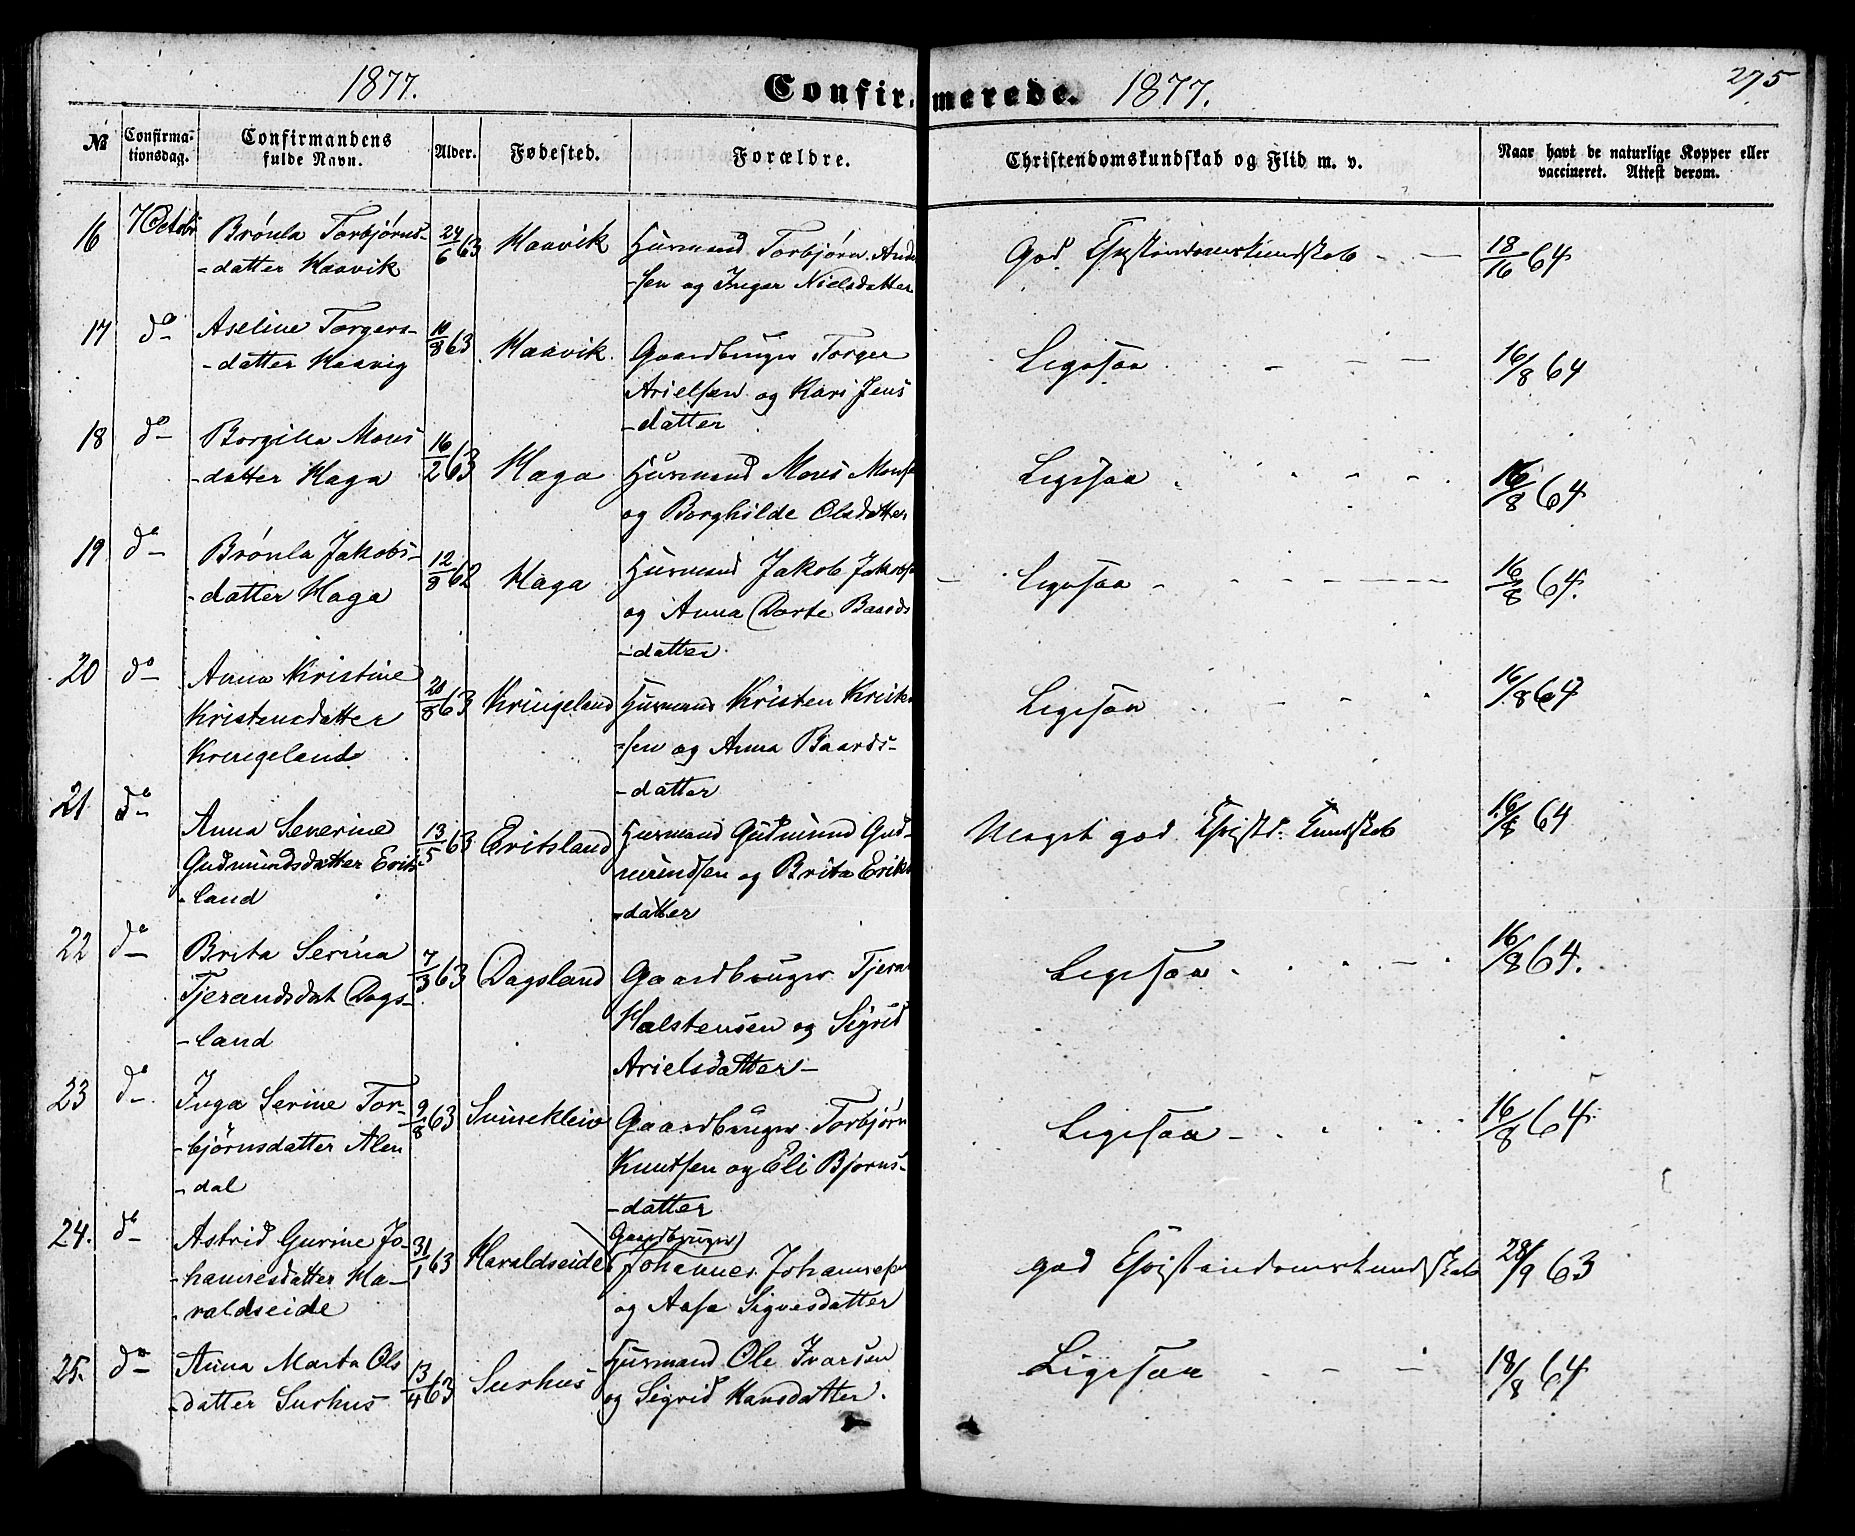 1877. Confirmerede. 1877. 275
№ Confirmationsdag. Confirmandens fulde Navn. Alder. Fødested. Forældre. Christendomskundskab og Flid m. v. Naar havt de naturlige Kopper eller vaccineret. Attest derom.
16 7 Octobr Brónla Torbjørns- 24/6 63 Haavik Husmand Torbjørn God Christendomskundskab - - 18/16 64
-datter Haavik -sen og Inger Nielsdatter
17 do Aseline Torgers- 10/8 63 Haavik Gaardbruger Torger Ligesaa - - - 16/8 64
-datter Haavig Arielsen og Kari Jens
-datter
18 do Borgilla Mons 16/2 63 Haga Husmand Mons Ligesaa 16/8 64
-datter Haga og Borghilde Olsdatter
19 do Brónla Jakobs- 12/8 62 Haga Husmand Jakob Ligesaa - 16/8 64.
-datter Haga og Anna Dorte Baards
-datter
20 do Anna Kristine 20/8 63 Kringeland Husmand Kristen Ligesaa 16/8 64
Kristensdatter -sen og Anna Baards-
Kringeland -datter
21 do Anna Severine 13/5 63 Eritsland Husmand Gudmund Gud- Meget god Christd. Kundskab 16/8 64
Gudmundsdatter Erits mundsen og Brita
-land -datter
22 do Brita Serina 7/3 63 Dagsland Gaardbruger Ligesaa 16/8 64.
Tjerandsdat Dags- Halstensen og Sigrid
-land Arielsdatter-
23 do Inga Serine Tor- 9/8 63 Svinekleiv Gaardbruger Torbjørn Ligesaa - 16/8 64
-bjørnsdatter Alen Knutsen og Eli Bjørns-
-dal -datter
24. do Astrid Gurine Jo- 31/1 63 Haraldseide Gaardbruger god Christendomskundskab 28/9 63
-hannesdatter Ha- Johannes Johannesen
-raldseide og Aasa Sigvesdatter
25. do Anna Marta Ols 13/4 63 Surhus Husmand Ole Ivarsen Ligesaa - - 18/8 64
-datter Surhus og Sigrid Hansdatter.